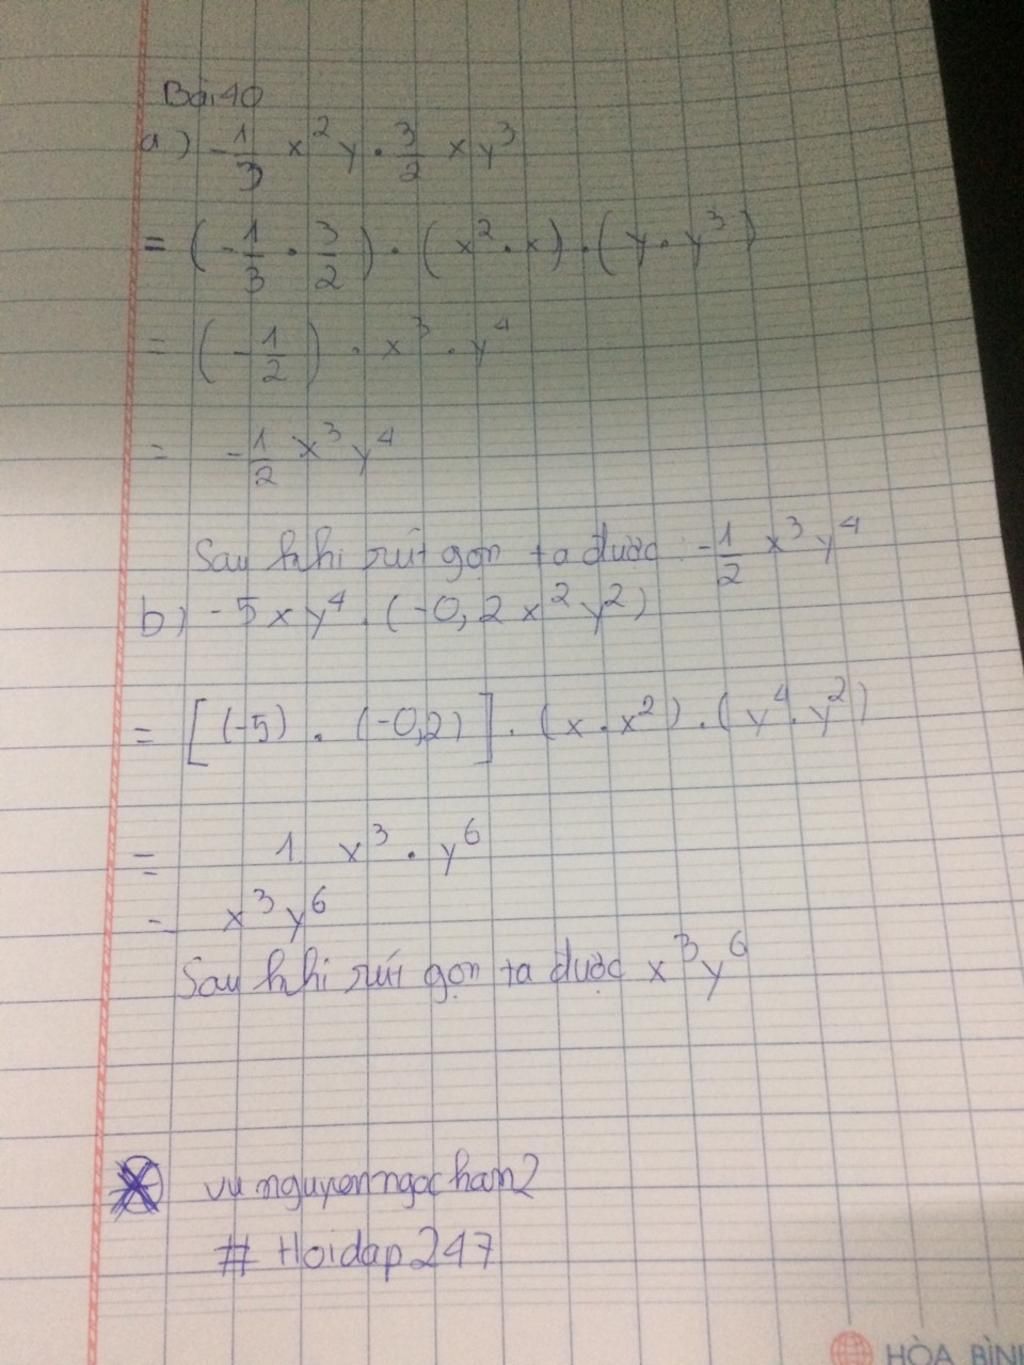 Bài 40
a) -1/3 x²y . 3/2 xy³
= (-1/3 . 3/2) . (x² . x) . (y . y³)
= (-1/2) . x³ . y⁴
= -1/2 x³y⁴
Sau khi rút gọn ta được -1/2 x³y⁴
b) -5xy⁴ . (-0,2x²y²)
= [(-5) . (-0,2)] . (x . x²) . (y⁴ . y²)
= 1 x³ . y⁶
= x³y⁶
Sau khi rút gọn ta được x³y⁶
vunguyenngochan2
# Hoidap247
HÒA BÌN